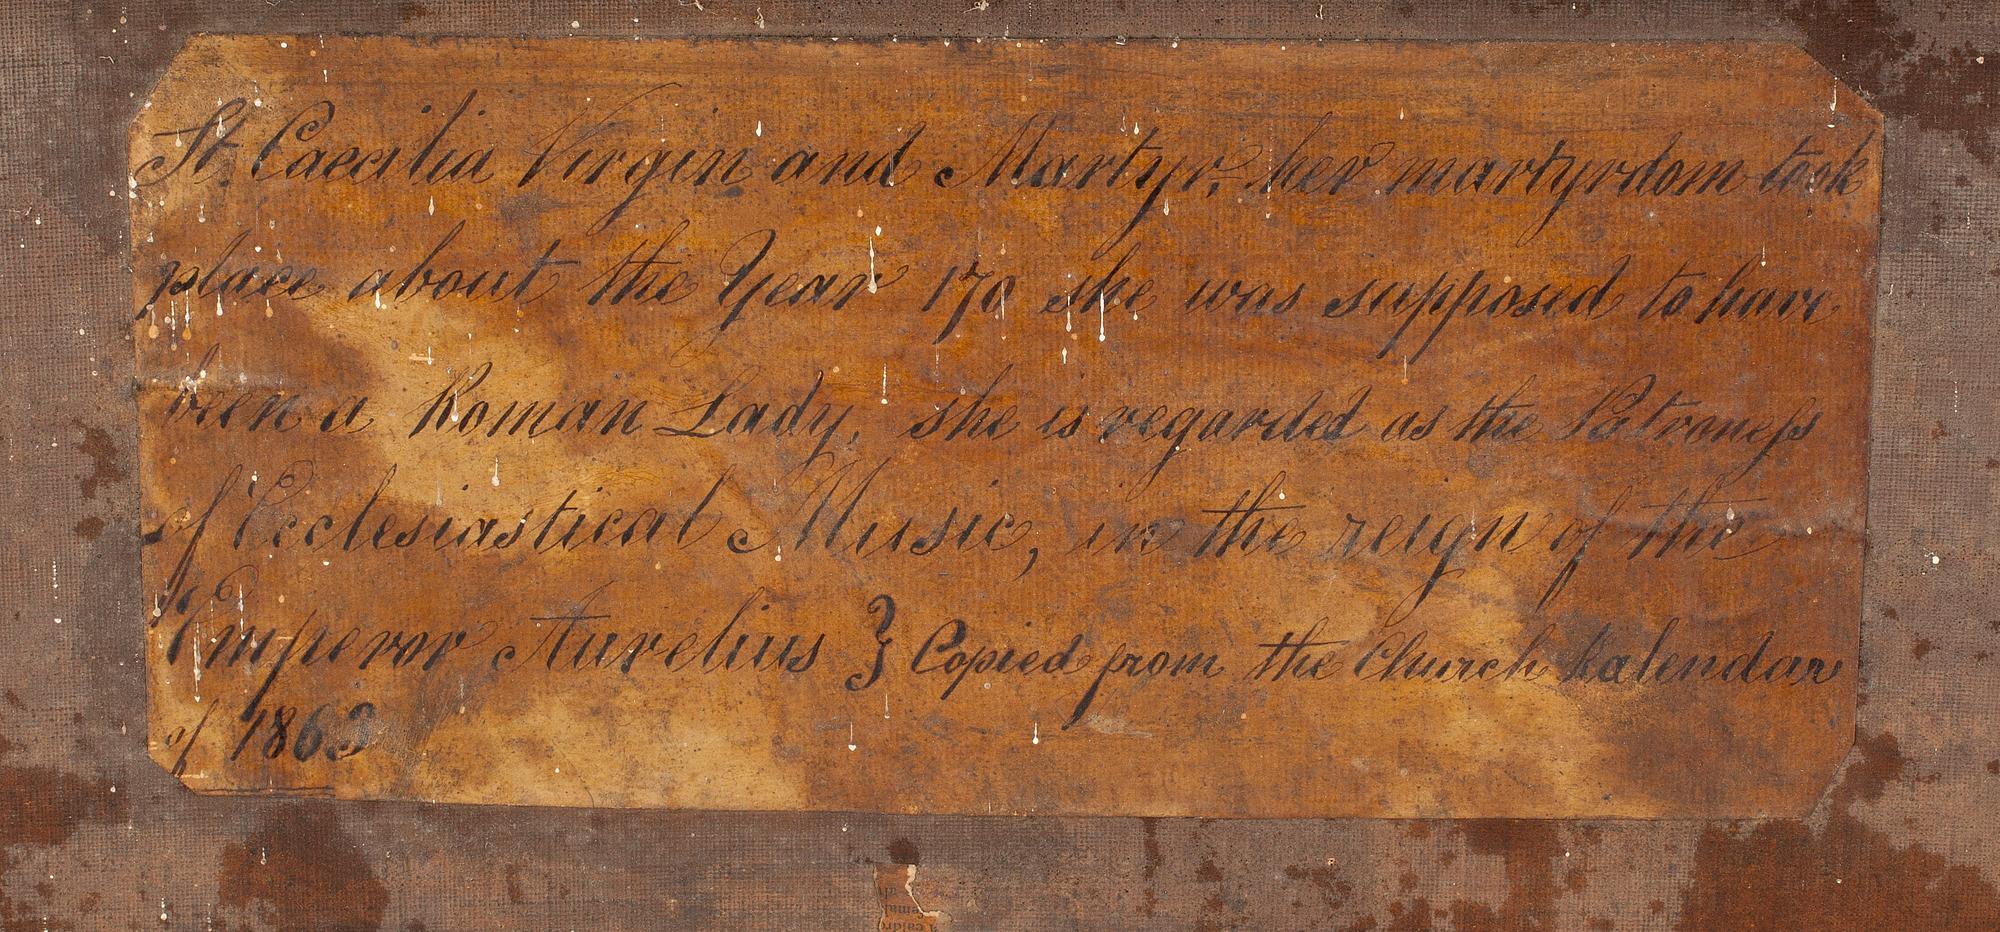 St. Caecilia Virgin and Martyr, her martyrdom took
place about the Year 170 she was supposed to have
been a Roman Lady, she is regarded as the Patroneſs
of Ecclesiastical Music, in the reign of the
Emperor Aurelius } Copied from the Church Kalendar
of 1863